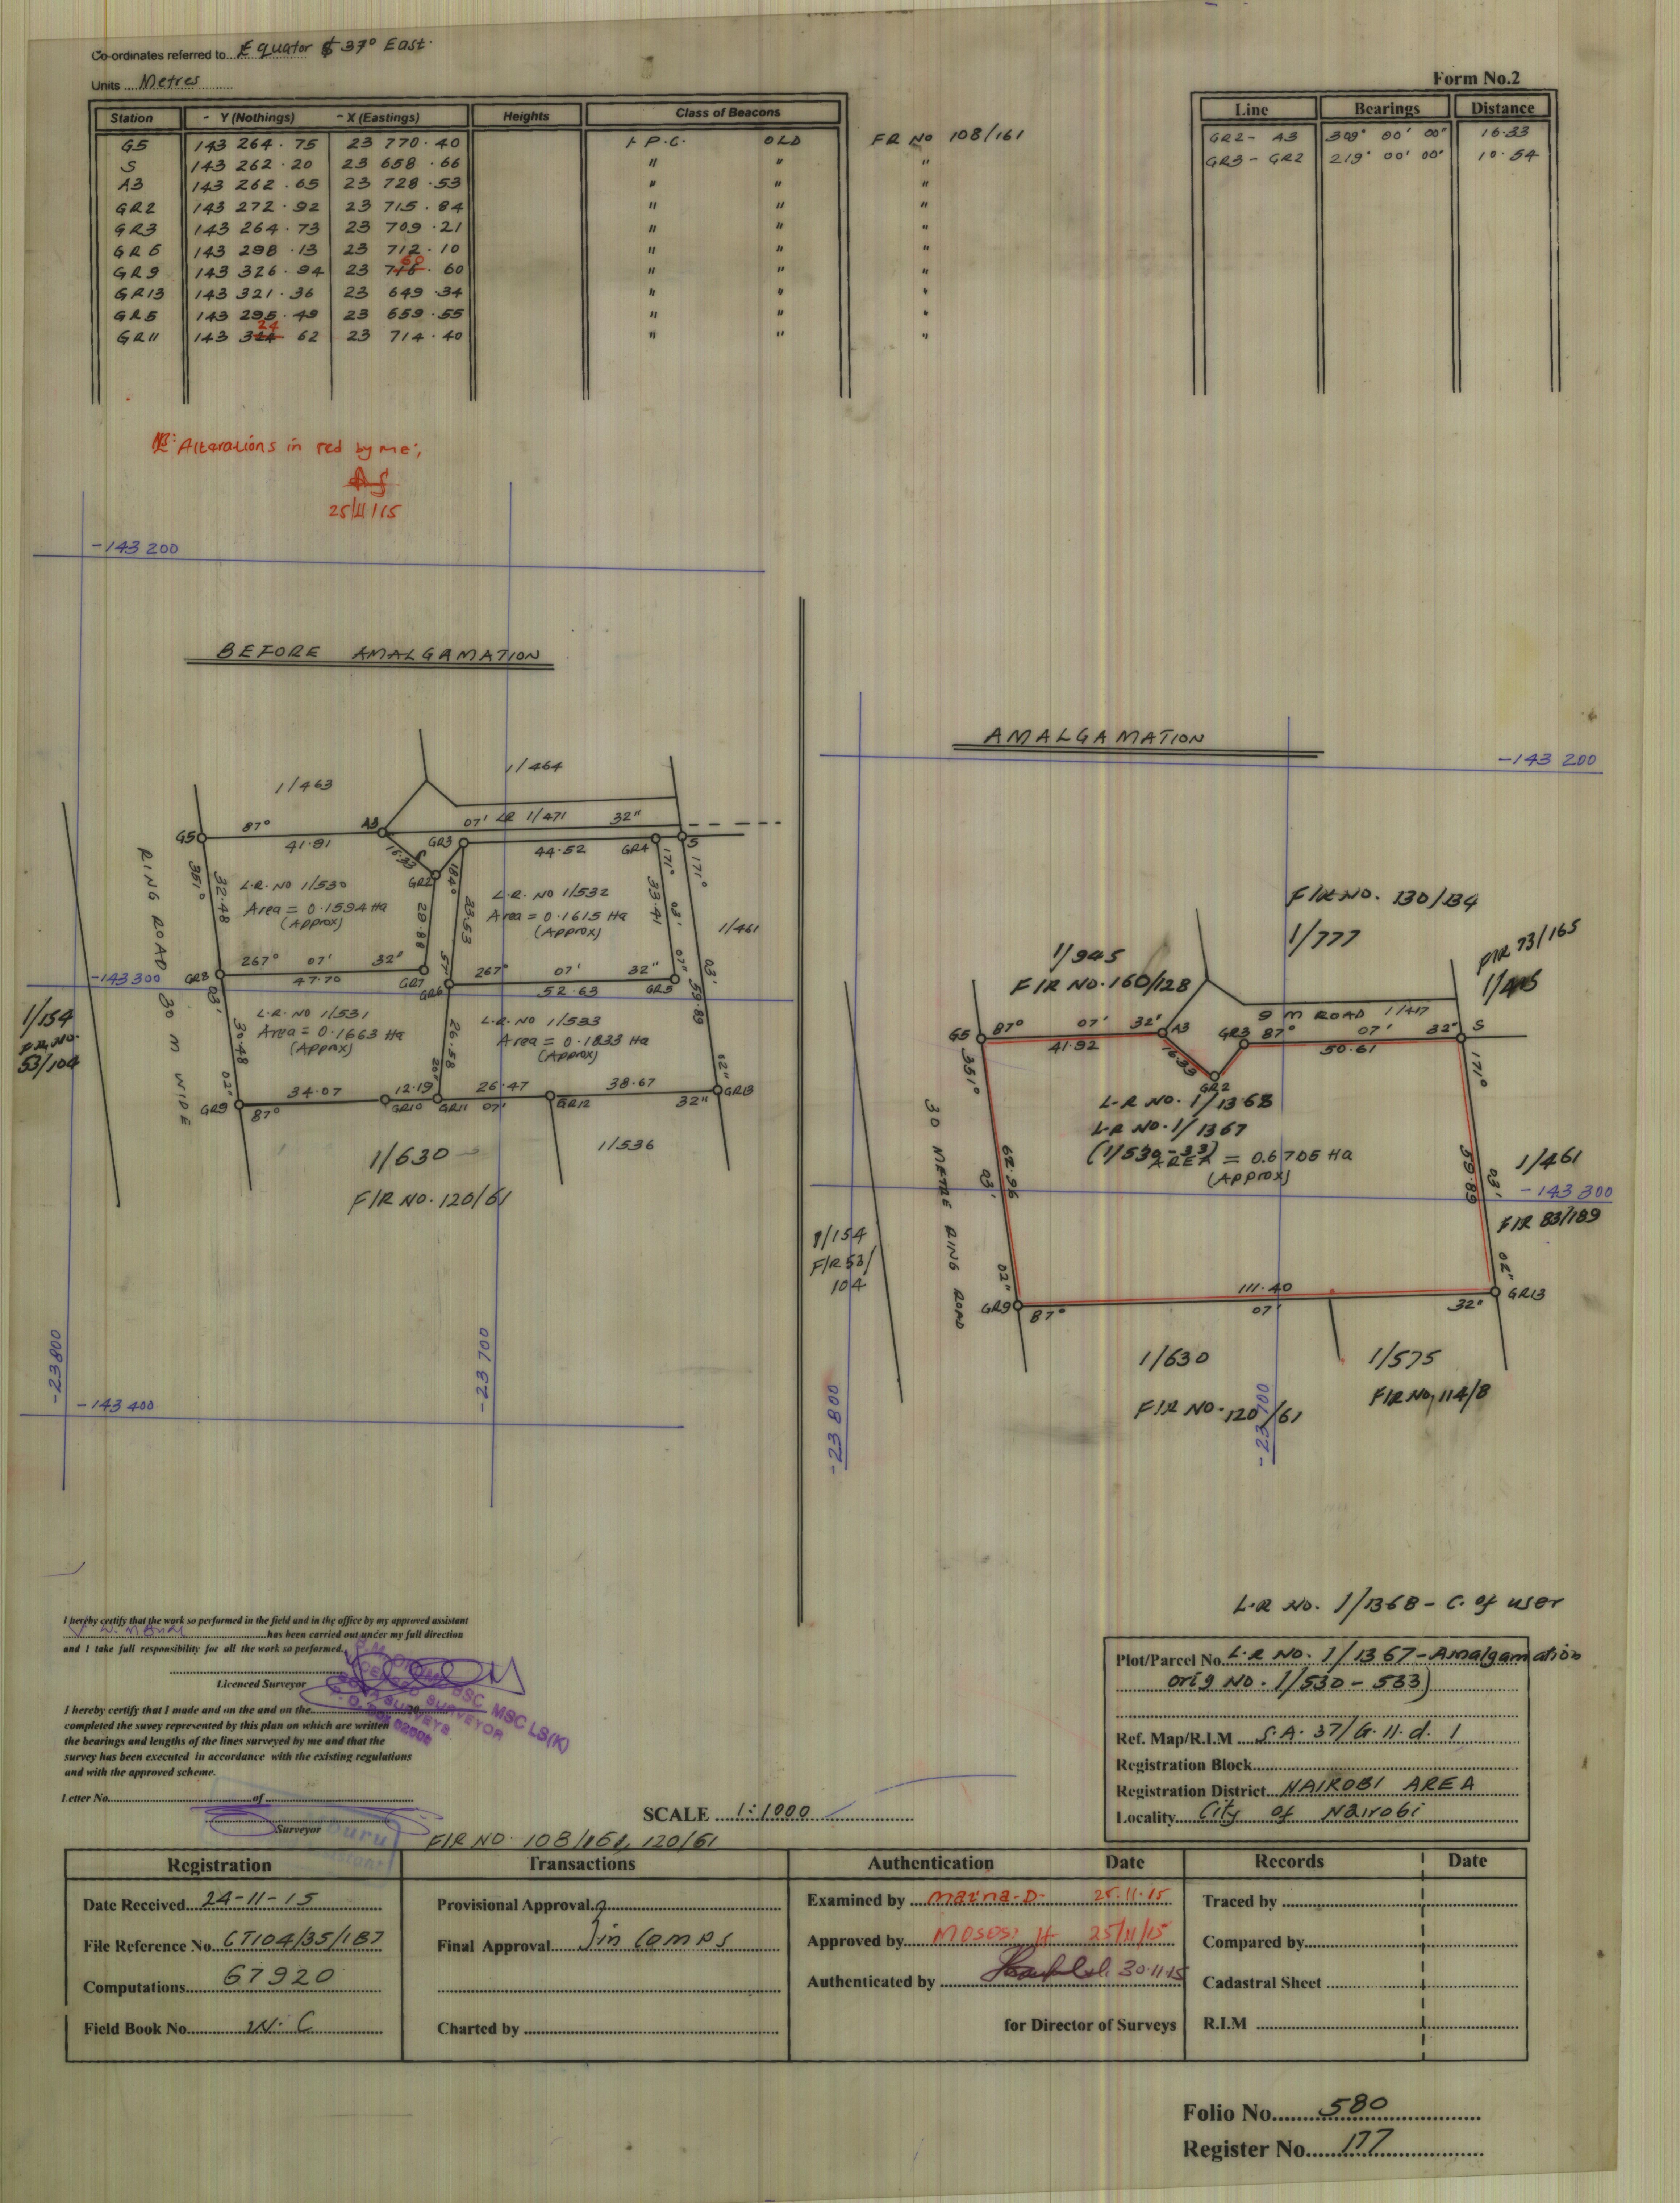 Co-ordinates referred to... Equator & 37° East.
Units .... Metres
Form No.2
Station - Y (Nothings) - X (Eastings) Heights Class of Beacons
G5 143 264.75 23 770.40 I.P.C. OLD FR No 108/161
S 143 262.20 23 658.66 " " "
A3 143 262.65 23 728.53 " " "
GR2 143 272.92 23 715.84 " " "
GR3 143 264.73 23 709.21 " " "
GR6 143 298.13 23 712.10 " " "
GR9 143 326.94 23 760.60 " " "
GR13 143 321.36 23 649.34 " " "
GR5 143 295.49 23 659.55 " " "
GR11 143 324 62 23 714.40 " " "
Line Bearings Distance
GR2- A3 309° 00' 00" 16.33
GR3 - GR2 219° 00' 00" 10.54
NB: Alterations in red by me;
25/11/15
-143 200
BEFORE AMALGAMATION
1/463
1/464
G5 87° A3 07' LR 1/471 32"
41.91 GR3 44.52 GR4 S
16.33
GR2
351° 32.48
184° 23.53 57'
28.88
171° 33.41 03' 07"
171° 03' 59.89 02"
L.R. NO 1/530
Area = 0.1594 Ha
(Approx)
L.R. NO 1/532
Area = 0.1615 Ha
(Approx)
1/461
RING ROAD 30 M WIDE
-143 300
GR8 267° 07' 32" GR7
47.70
GR6 267° 07' 32" GR5
52.63
1/154
F.R. NO.
53/104
L.R. NO 1/531
Area = 0.1663 Ha
(Approx)
L.R. NO 1/533
Area = 0.1833 Ha
(Approx)
03' 30.48 02"
26.58 20"
GR9 34.07 12.19 26.47 38.67 GR13
87° GR10 GR11 07' GR12 32"
1/630
F/R NO. 120/61
1/536
-23 800
-23 700
-143 400
AMALGAMATION
-143 200
F/R NO. 130/134
1/777
1/945
F/R NO. 160/128
F/R 73/165
9 M ROAD 1/417
G5 87° 07' 32" A3 GR3 87° 07' 32" S
41.92 16.33 50.61
GR2
351° 62.96 03' 02"
171° 59.89 03' 02"
L.R NO. 1/1368
L.R NO. 1/1367
(1/530-33)
AREA = 0.6705 Ha
(Approx)
30 METRE RING ROAD
1/461
-143 300
F/R 83/189
1/154
F/R 53/
104
GR9 87° 111.40 07' 32" GR13
1/630
F/R NO. 120/61
1/575
F/R NO, 114/8
-23 800
-23 700
L.R NO. 1/1368 - C. of user
Plot/Parcel No. L.R NO. 1/1367-Amalgamation
orig NO. 1/530 - 533)
Ref. Map/R.I.M .... S.A. 37/G.11.d. 1
Registration Block
Registration District... NAIROBI AREA
Locality... City of Nairobi
I hereby certify that the work so performed in the field and in the office by my approved assistant
has been carried out under my full direction
and I take full responsibility for all the work so performed.
Licenced Surveyor
BSC MSC LS(K)
SURVEYOR
SURVEYS
I hereby certify that I made and on the and on the
completed the suvey represented by this plan on which are written
the bearings and lengths of the lines surveyed by me and that the
survey has been executed in accordance with the existing regulations
and with the approved scheme.
Letter No. of
Surveyor
SCALE .... 1:1000
F/R NO. 108/161, 120/61
Registration Transactions Authentication Date Records Date
Date Received... 24-11-15
File Reference No. CT104/35/187
Computations... 67920
Field Book No. .... N. C
Provisional Approval
Final Approval.... in comps
Charted by
Examined by ... Maina-D- 25.11.15
Approved by... Moses. 25/11/15
Authenticated by ... 30.11.15
for Director of Surveys
Traced by
Compared by
Cadastral Sheet
R.I.M
Folio No. 580
Register No. 177